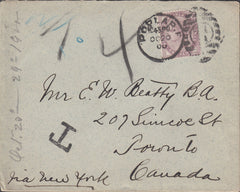 POPLAR
OC 20
00
4
Mr E. W. Beatty B.A.
207 Simcoe St
Toronto
Canada
T
via New York
Oct. 20th